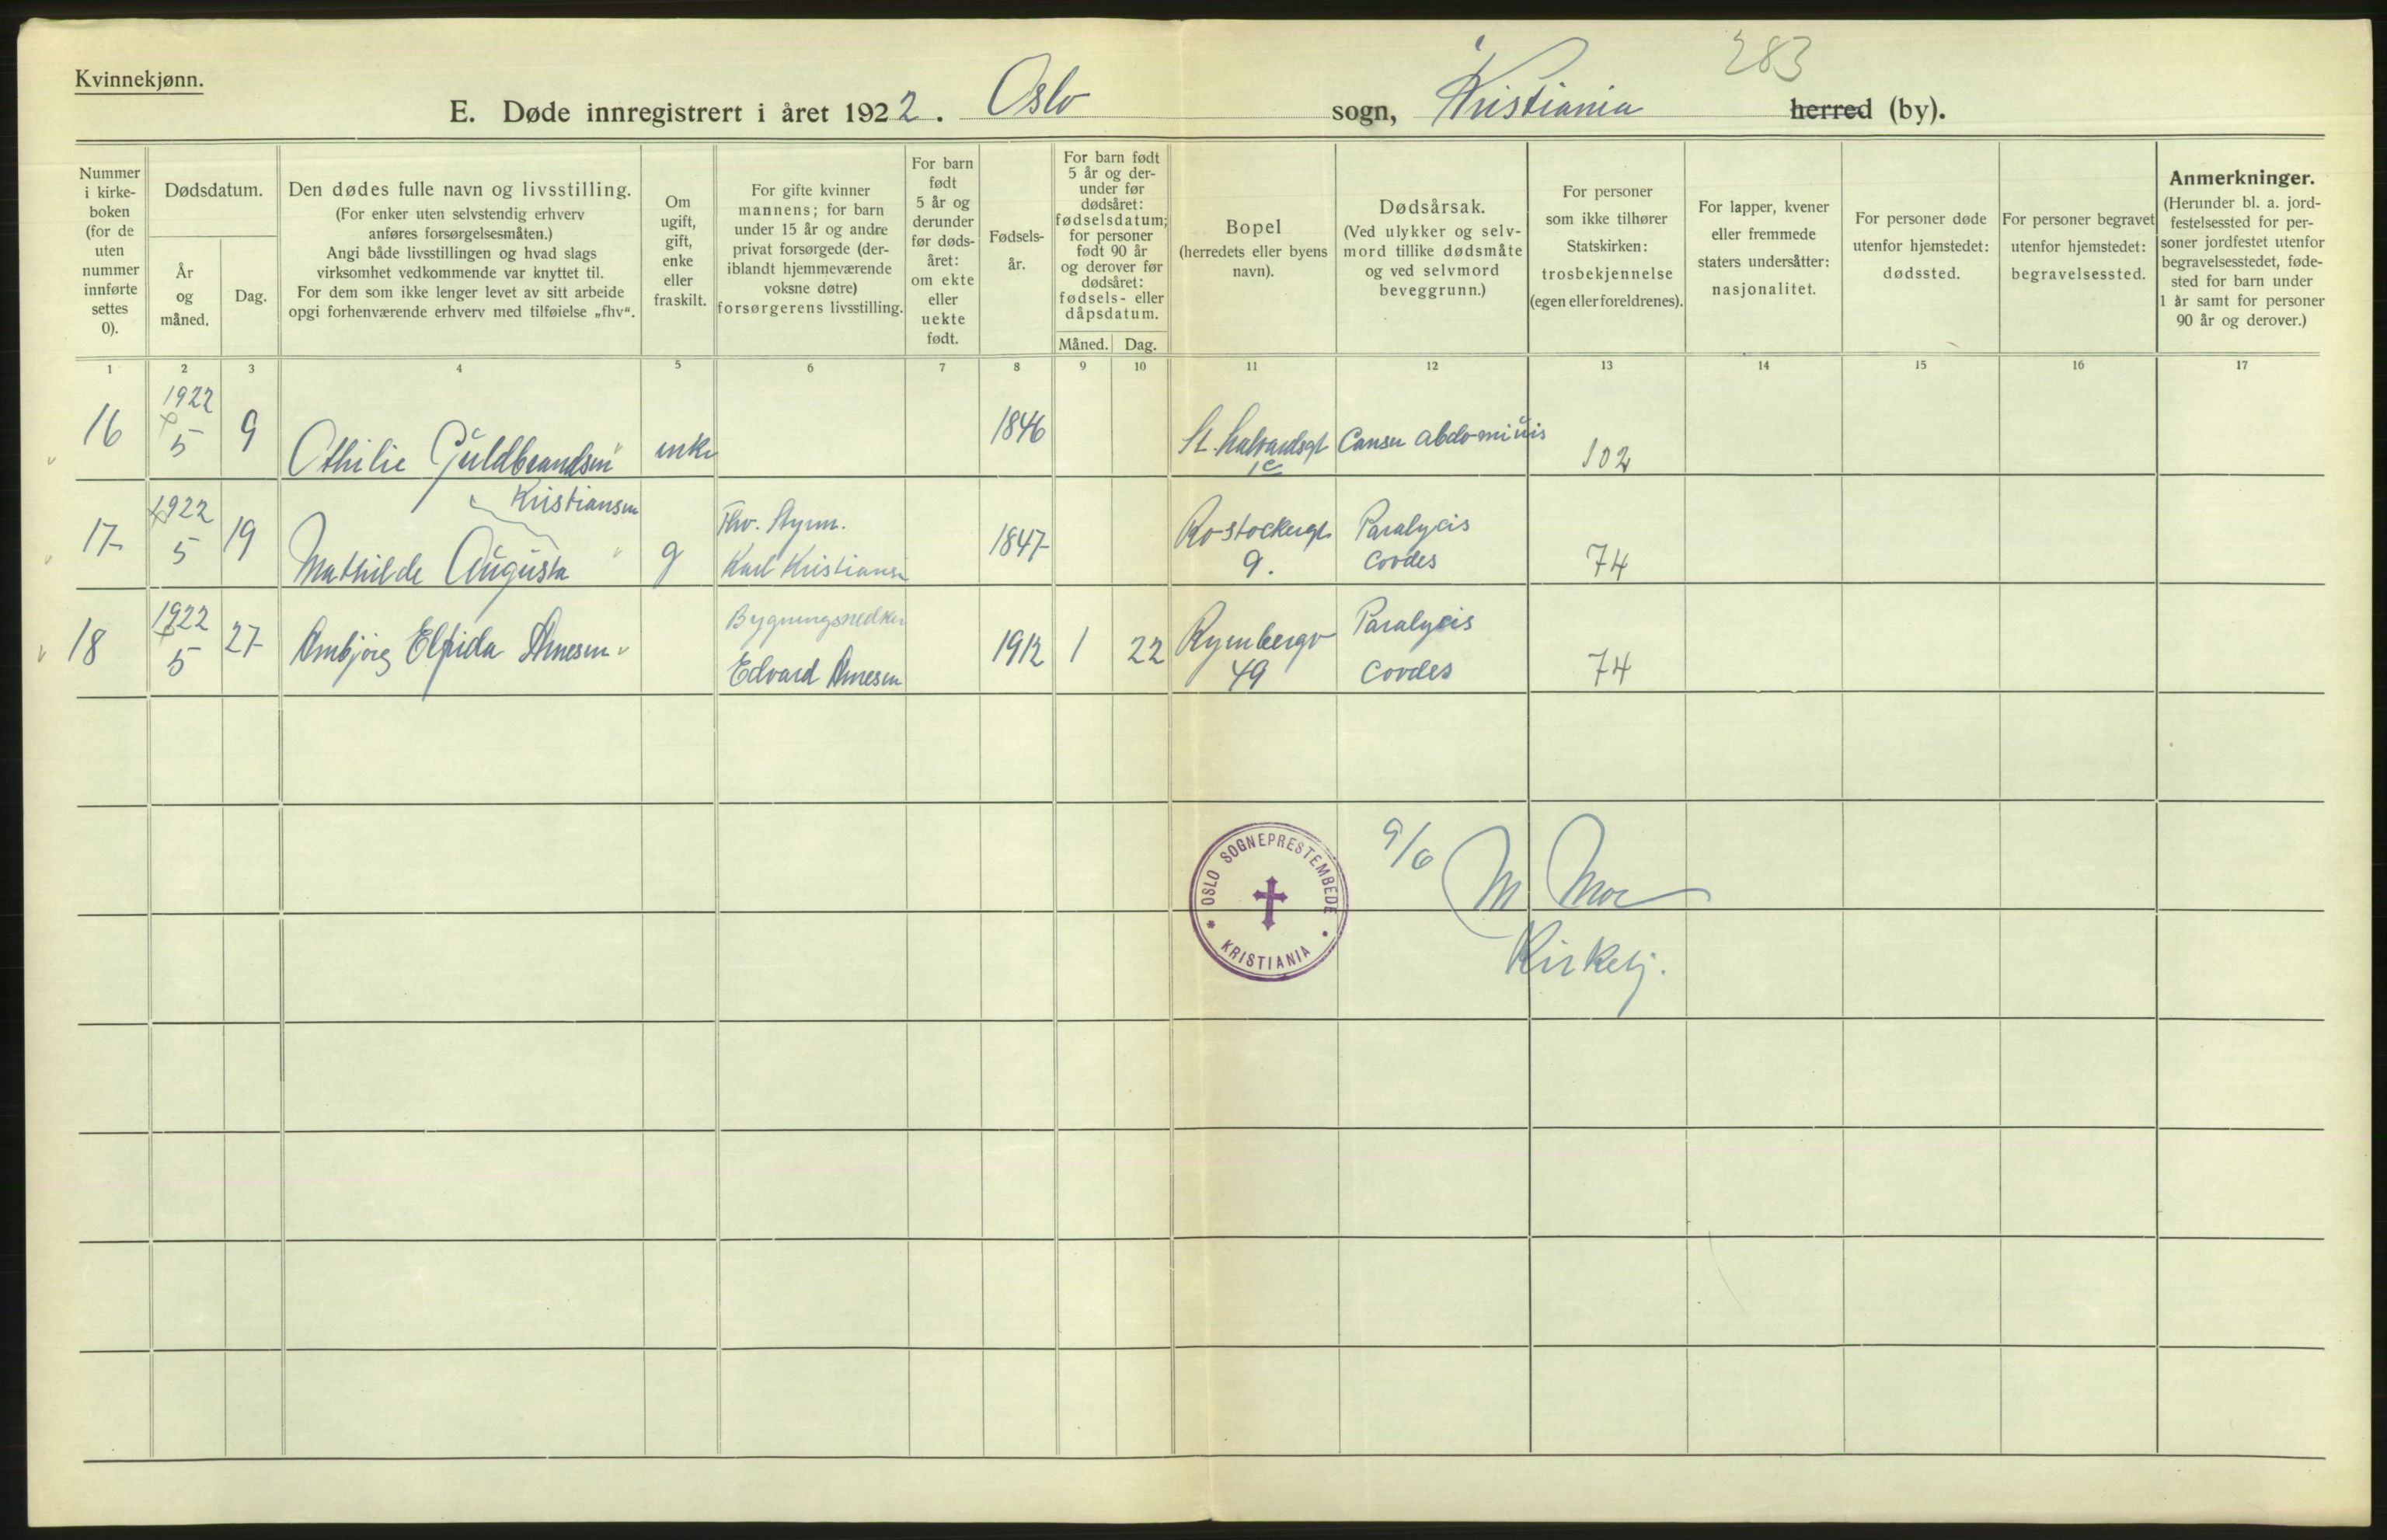 Kvinnekjønn.
283
E. Døde innregistrert i året 1922. Oslo sogn, Kristiania herred (by).
Nummer
i kirke-
boken
(for de
uten
nummer
innførte
settes
0).
Dødsdatum.
År
og
måned.
Dag.
Den dødes fulle navn og livsstilling.
(For enker uten selvstendig erhverv
anføres forsørgelsesmåten.)
Angi både livsstillingen og hvad slags
virksomhet vedkommende var knyttet til.
For dem som ikke lenger levet av sitt arbeide
opgi forhenværende erhverv med tilføielse „fhv“.
Om
ugift,
gift,
enke
eller
fraskilt.
For gifte kvinner
mannens; for barn
under 15 år og andre
privat forsørgede (der-
iblandt hjemmeværende
voksne døtre)
forsørgerens livsstilling.
For barn
født
5 år og
derunder
før døds-
året:
om ekte
eller
uekte
født.
Fødsels-
år.
For barn født
5 år og der-
under før
dødsåret:
fødselsdatum;
for personer
født 90 år
og derover før
dødsåret:
fødsels- eller
dåpsdatum.
Måned. Dag.
Bopel
(herredets eller byens
navn).
Dødsårsak.
(Ved ulykker og selv-
mord tillike dødsmåte
og ved selvmord
beveggrunn.)
For personer
som ikke tilhører
Statskirken:
trosbekjennelse
(egen eller foreldrenes).
For lapper, kvener
eller fremmede
staters undersåtter:
nasjonalitet.
For personer døde
utenfor hjemstedet:
dødssted.
For personer begravet
utenfor hjemstedet:
begravelsessted.
Anmerkninger.
(Herunder bl. a. jord-
festelsessted for per-
soner jordfestet utenfor
begravelsesstedet, føde-
sted for barn under
1 år samt for personer
90 år og derover.)
1 2 3 4 5 6 7 8 9 10 11 12 13 14 15 16 17
1922
16 5 9 Othilie Guldbrandsen enke 1846 St. Halvardsgt Cancer abdominis 102
1c
1922 Kristiansen Fhv. Rostockergt. Paralycis
17 5 19 Mathilde Augusta g Karl Kristiansen 1847 9. Cordes 74
1922 Bygningssnedker Paralycis
18 5 27 Arnbjørg Elfrida Arnesen Edvard Arnesen 1912 1 22 49 Cordes 74
9/6 M Moe
Kirketj.
OSLO SOGNEPRESTEMBEDE
KRISTIANIA